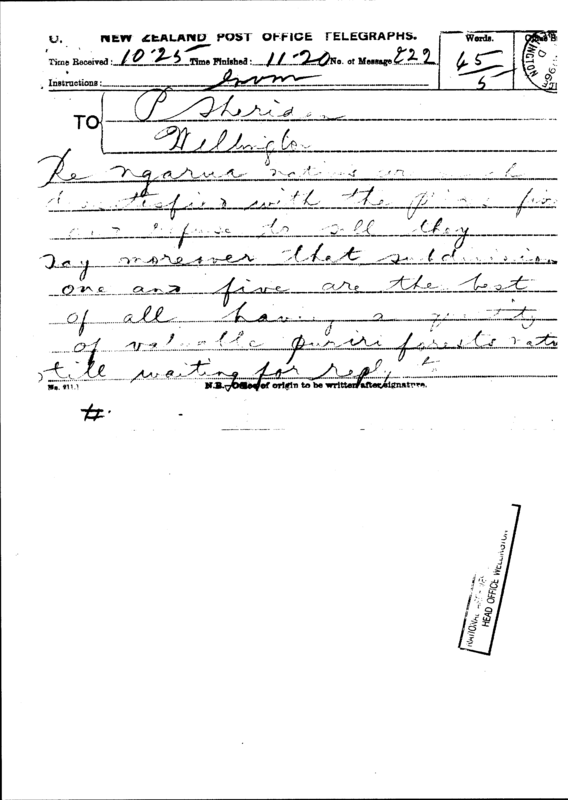 NEW ZEALAND POST OFFICE TELEGRAPHS.
Time Received: 10.25 Time Finished: 11.20 No. of Message 822
Words.
45
5
Instructions:
TO P Sheridan
Wellington
Re ngarua natives
dissatisfied with the
refuse to sell they
say moreover that subdivision
one and five are the best
of all having a quantity
of valuable puriri forests
still waiting for reply to
No. 911.) N.B.—Office of origin to be written after signature.
HEAD OFFICE WELLINGTON